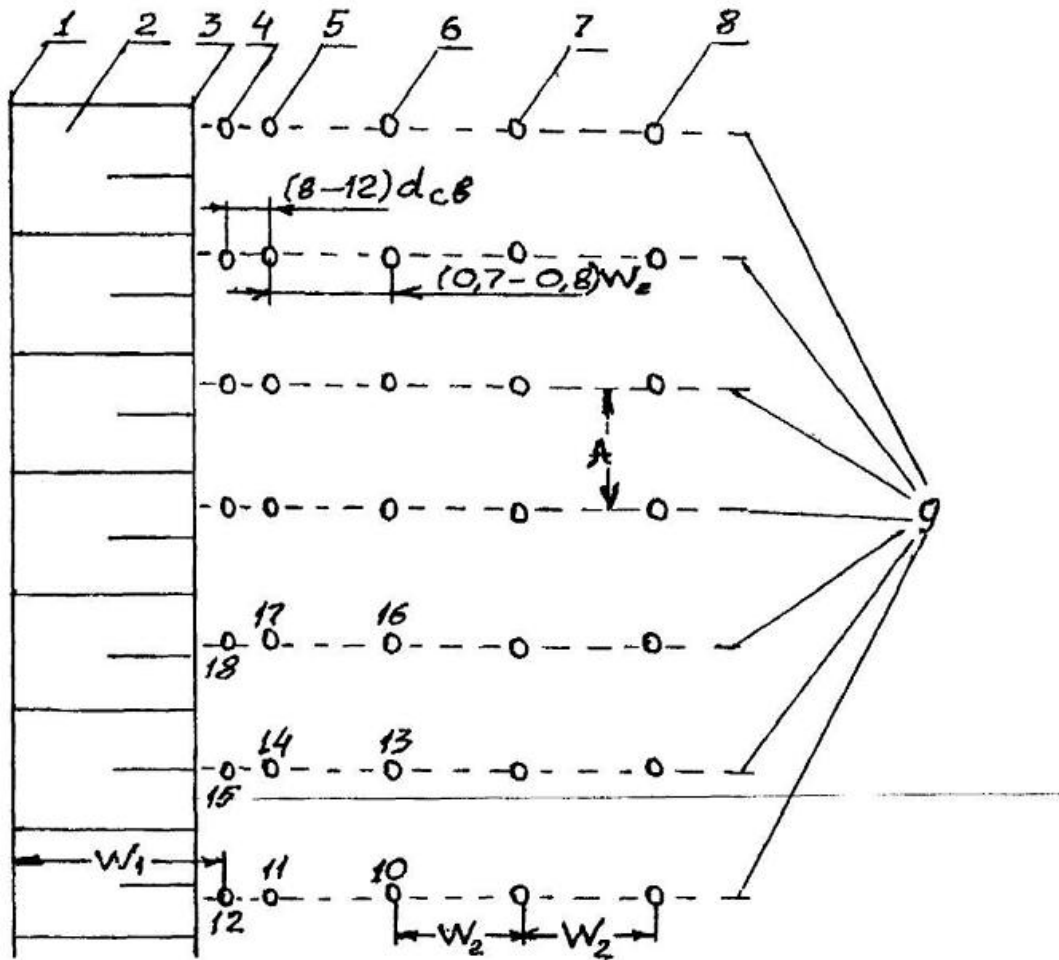 1 2 3 4 5 6 7 8
(8-12)dсв
(0,7-0,8)W₂
A
9
17 16
18
14 13
15
W₁ 11 10
12
W₂ W₂